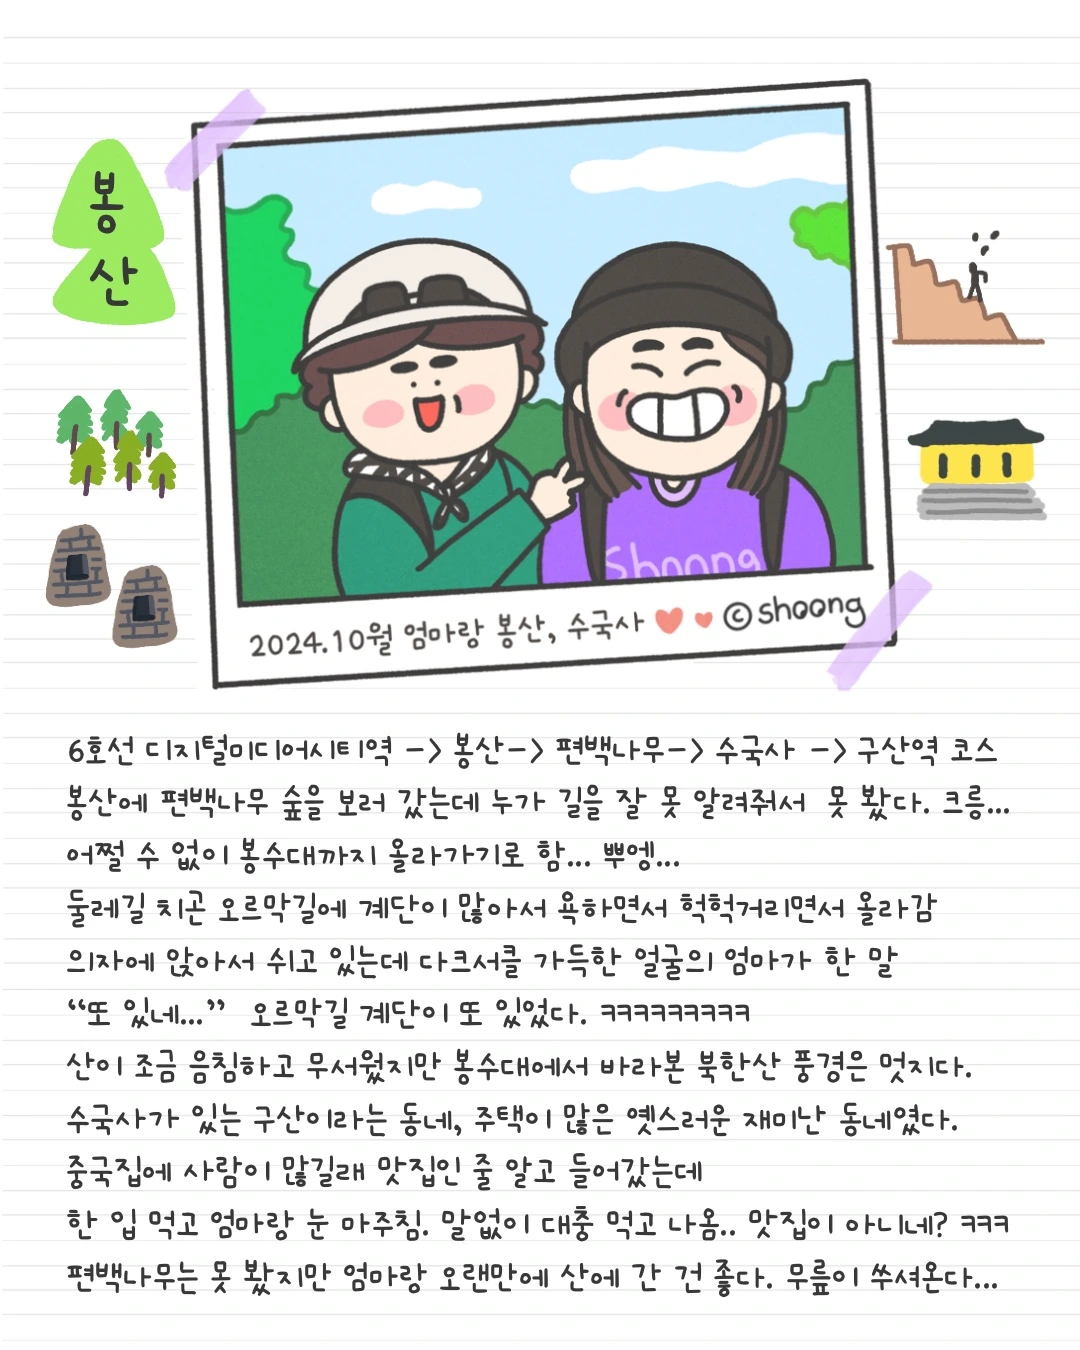 봉
산
Shoong
2024.10월 엄마랑 봉산, 수국사 ♥ ♥ ©shoong
6호선 디지털미디어시티역 -> 봉산-> 편백나무-> 수국사 -> 구산역 코스
봉산에 편백나무 숲을 보러 갔는데 누가 길을 잘 못 알려줘서 못 봤다. 크릉...
어쩔 수 없이 봉수대까지 올라가기로 함... 뿌엥...
둘레길 치곤 오르막길에 계단이 많아서 욕하면서 헉헉거리면서 올라감
의자에 앉아서 쉬고 있는데 다크서클 가득한 얼굴의 엄마가 한 말
“또 있네...” 오르막길 계단이 또 있었다. ㅋㅋㅋㅋㅋㅋㅋㅋㅋ
산이 조금 음침하고 무서웠지만 봉수대에서 바라본 북한산 풍경은 멋지다.
수국사가 있는 구산이라는 동네, 주택이 많은 옛스러운 재미난 동네였다.
중국집에 사람이 많길래 맛집인 줄 알고 들어갔는데
한 입 먹고 엄마랑 눈 마주침. 말없이 대충 먹고 나옴.. 맛집이 아니네? ㅋㅋㅋ
편백나무는 못 봤지만 엄마랑 오랜만에 산에 간 건 좋다. 무릎이 쑤셔온다...